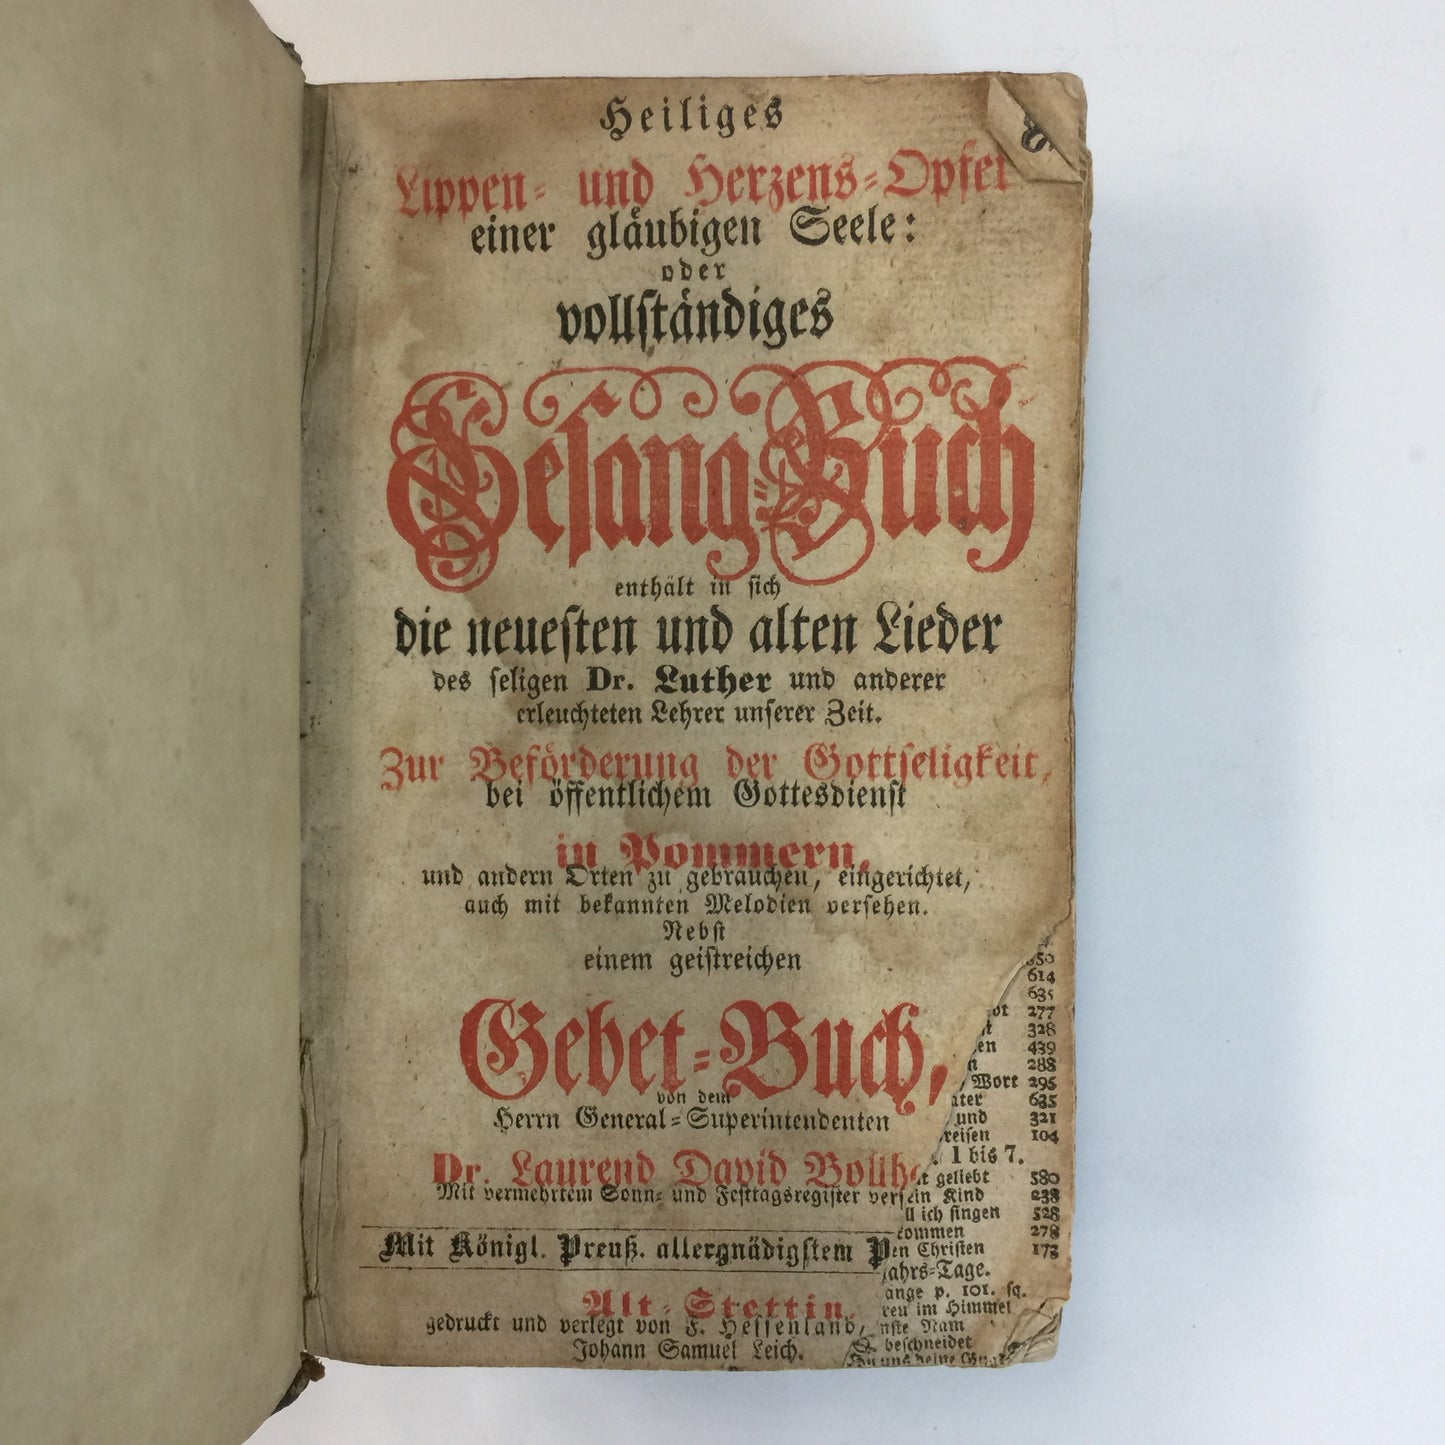 Heiliges
Lippen- und Herzens-Opfer
einer gläubigen Seele:
oder
vollständiges
Gesang-Buch
enthält in sich
die neuesten und alten Lieder
des seligen Dr. Luther und anderer
erleuchteten Lehrer unserer Zeit.
Zur Beförderung der Gottseligkeit,
bei öffentlichem Gottesdienst
in Pommern,
und andern Orten zu gebrauchen, eingerichtet,
auch mit bekannten Melodien versehen.
Nebst
einem geistreichen
Gebet-Buch,
von dem
Herrn General-Superintendenten
Dr. Laurend David Bollh
Mit vermehrtem Sonn- und Festtagsregister
Mit Königl. Preuß. allergnädigstem
Alt-Stettin,
gedruckt und verlegt von F. Hessenland,
Johann Samuel Leich.
614
635
277
328
en 439
288
Wort 295
635
und 321
reisen 104
1 bis 7.
geliebt 580
Kind 238
ich singen 528
kommen 278
en Christen 173
ahrs-Tage.
ange p. 101. sq.
im Himmel
Nam
beschneidet